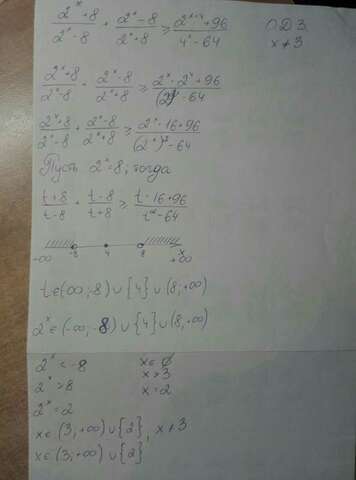 (2^x+8)/(2^x-8) + (2^x-8)/(2^x+8) ≥ (2^(x+4)+96)/(4^x-64)   ОДЗ
x≠3
(2^x+8)/(2^x-8) + (2^x-8)/(2^x+8) ≥ (2^x·2^4+96)/((2^x)^2-64)
(2^x+8)/(2^x-8) + (2^x-8)/(2^x+8) ≥ (2^x·16+96)/((2^x)^2-64)
Пусть 2^x=8; тогда
(t+8)/(t-8) + (t-8)/(t+8) ≥ (t·16+96)/(t^2-64)
-8 4 8 x
+∞ +∞
t∈(∞;-8)∪{4}∪(8;+∞)
2^x∈(-∞;-8)∪{4}∪(8;+∞)
2^x<-8 x∈∅
2^x>8 x>3
2^x=2 x=2
x∈(3;+∞)∪{2}, x≠3
x∈(3;+∞)∪{2}